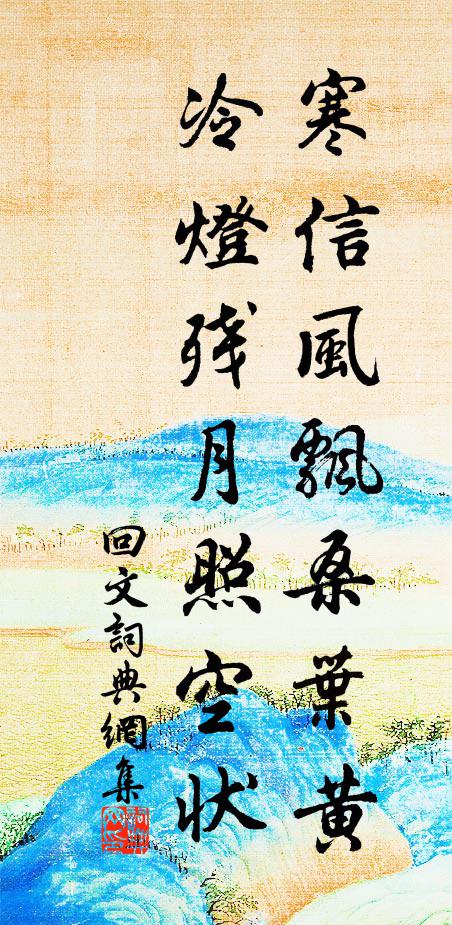 寒信風飄桑葉黄
冷燈残月照空状
回文詞典網集